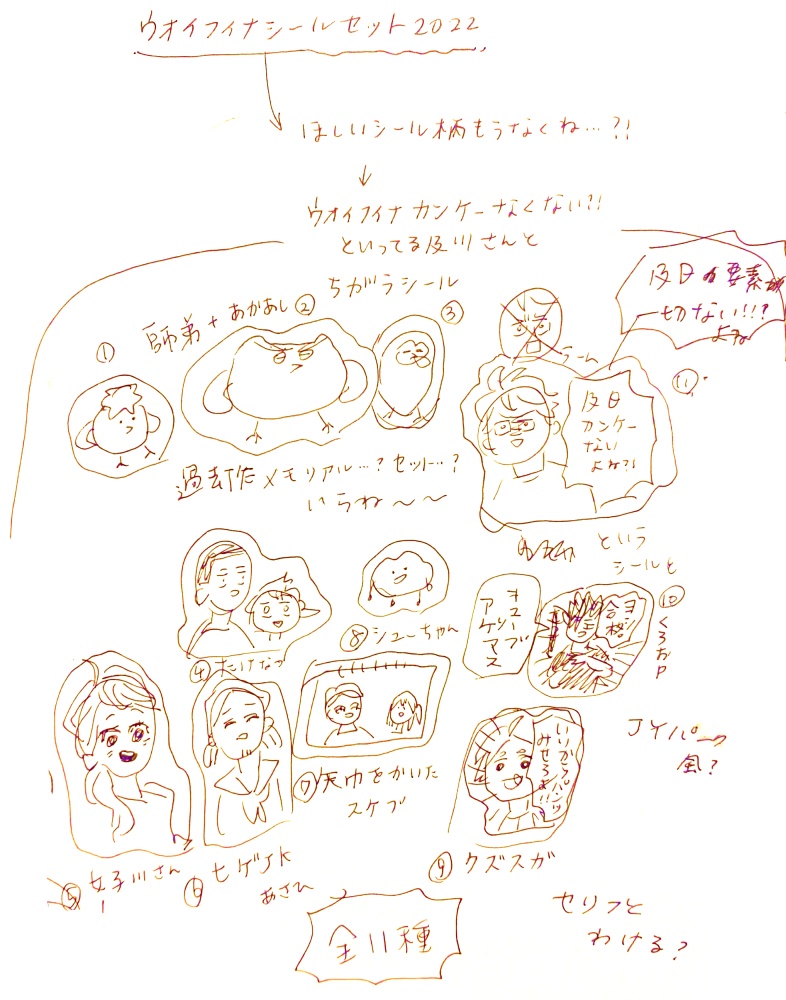 ウオイフイナシールセット2022
ほしいシール柄もうなくね…?!
ウオイフイナカンケーなくない?!
といってる及川さんと
ちがうシール
及日の要素が
一切ない!!!?
よね
① 師弟+あかあし ② ③
らーん
⑪
及日
カンケー
ない
よね?!
過去作メモリアル…?セット…?
いらね〜〜
という
シールと
④たけなつ
⑧シューちゃん
キューブ
アゲ
マス
ヨシ!
合格
⑩くろおP
⑦矢巾をかいた
スケブ
いいからパンツ
みせろよ!!
JYパーク
風?
⑤女子川さん
⑥ヒゲJK
あさひ
⑨クズスガ
全11種
セリフと
わける?